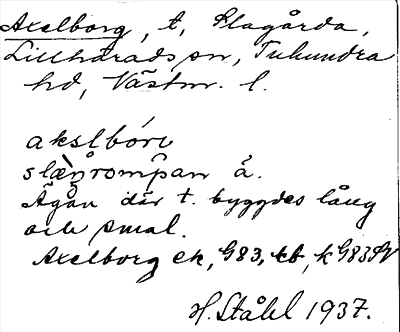 Axelborg, t, Slagårda,
Lillhärads sn, Tuhundra
hd, Västm. l.
akslbóri
slæ̀ŋrompan å.
Ägan där t. byggdes lång
och smal.
Axelborg ek, G83, tb, k G83 SV
H. Ståhl 1937.